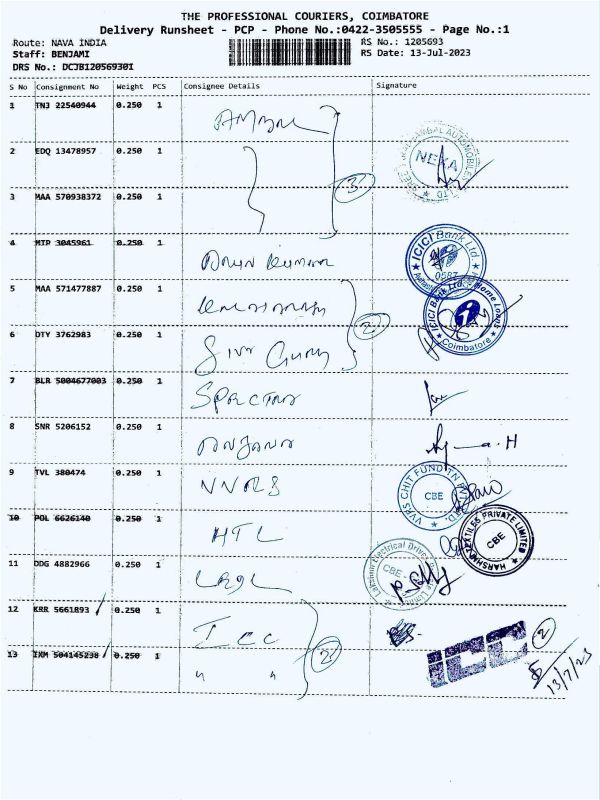 THE PROFESSIONAL COURIERS, COIMBATORE
Delivery Runsheet - PCP - Phone No.:0422-3505555 - Page No.:1
Route: NAVA INDIA RS No.: 1205693
Staff: BENJAMI RS Date: 13-Jul-2023
DRS No.: DCJB120569301
S No Consignment No Weight PCS Consignee Details Signature
1 TNJ 22540944 0.250 1
2 EDQ 13478957 0.250 1
NEXA
3 MAA 570938372 0.250 1
3
4 MTP 3045961 0.250 1 Arun Kumar
ICICI Bank Ltd
0587
5 MAA 571477887 0.250 1
2
ICICI Bank Ltd Home Loans
Coimbatore
6 DTY 3762983 0.250 1 Siva Guru
7 BLR 5004677003 0.250 1 Spectra
8 SNR 5206152 0.250 1 Anjana
9 TVL 380474 0.250 1 VVRS
CHIT FUND TN
CBE
10 POL 6626140 0.250 1 HTL
TEXTILES PRIVATE LIMITED
CBE
11 DDG 4882966 0.250 1
Electrical Drive
CBE
12 KRR 5661893 0.250 1 ICC
2
ICC
2
13 IXM 504145238 0.250 1 " "
13/7/23